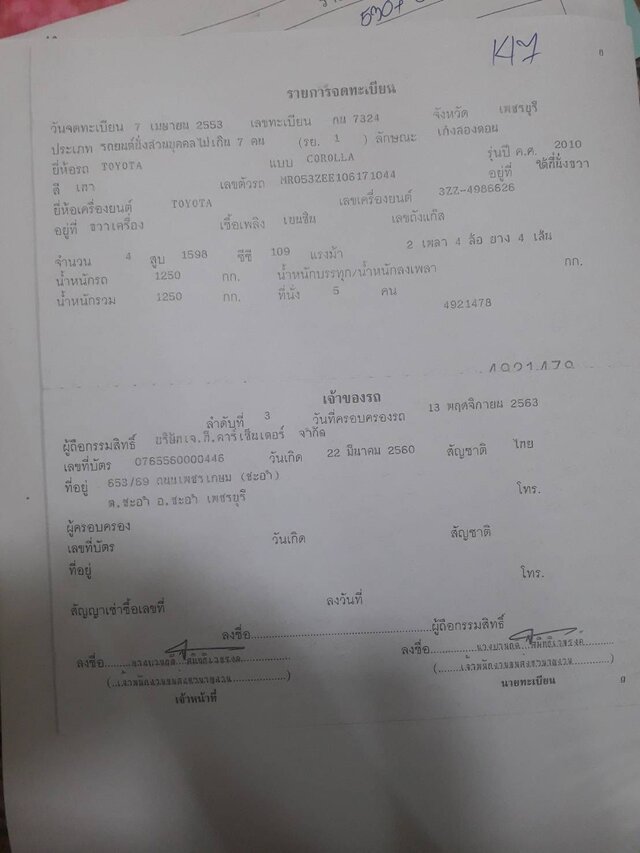 K17
รายการจดทะเบียน
วันจดทะเบียน 7 เมษายน 2553 เลขทะเบียน กน 7324 จังหวัด เพชรบุรี
ประเภท รถยนต์นั่งส่วนบุคคลไม่เกิน 7 คน (รย. 1 ) ลักษณะ เก๋งสองตอน
ยี่ห้อรถ TOYOTA แบบ COROLLA รุ่นปี ค.ศ. 2010
สี เทา เลขตัวรถ MR053ZEE106171044 อยู่ที่ ใต้ที่นั่งขวา
ยี่ห้อเครื่องยนต์ TOYOTA เลขเครื่องยนต์ 3ZZ-4986626
อยู่ที่ ขวาเครื่อง เชื้อเพลิง เบนซิน เลขถังแก๊ส
จำนวน 4 สูบ 1598 ซีซี 109 แรงม้า 2 เพลา 4 ล้อ ยาง 4 เส้น
น้ำหนักรถ 1250 กก. น้ำหนักบรรทุก/น้ำหนักลงเพลา กก.
น้ำหนักรวม 1250 กก. ที่นั่ง 5 คน
4921478
เจ้าของรถ
ลำดับที่ 3 วันที่ครอบครองรถ 13 พฤศจิกายน 2563
ผู้ถือกรรมสิทธิ์ บริษัทเจ.ที.คาร์เซ็นเตอร์ จำกัด
เลขที่บัตร 0765560000446 วันเกิด 22 มีนาคม 2560 สัญชาติ ไทย
ที่อยู่ 653/69 ถนนเพชรเกษม (ชะอำ)
ต.ชะอำ อ.ชะอำ เพชรบุรี โทร.
ผู้ครอบครอง
เลขที่บัตร วันเกิด สัญชาติ
ที่อยู่ โทร.
สัญญาเช่าซื้อเลขที่ ลงวันที่
ลงชื่อ ผู้ถือกรรมสิทธิ์
ลงชื่อ ลงชื่อ
เจ้าหน้าที่ นายทะเบียน